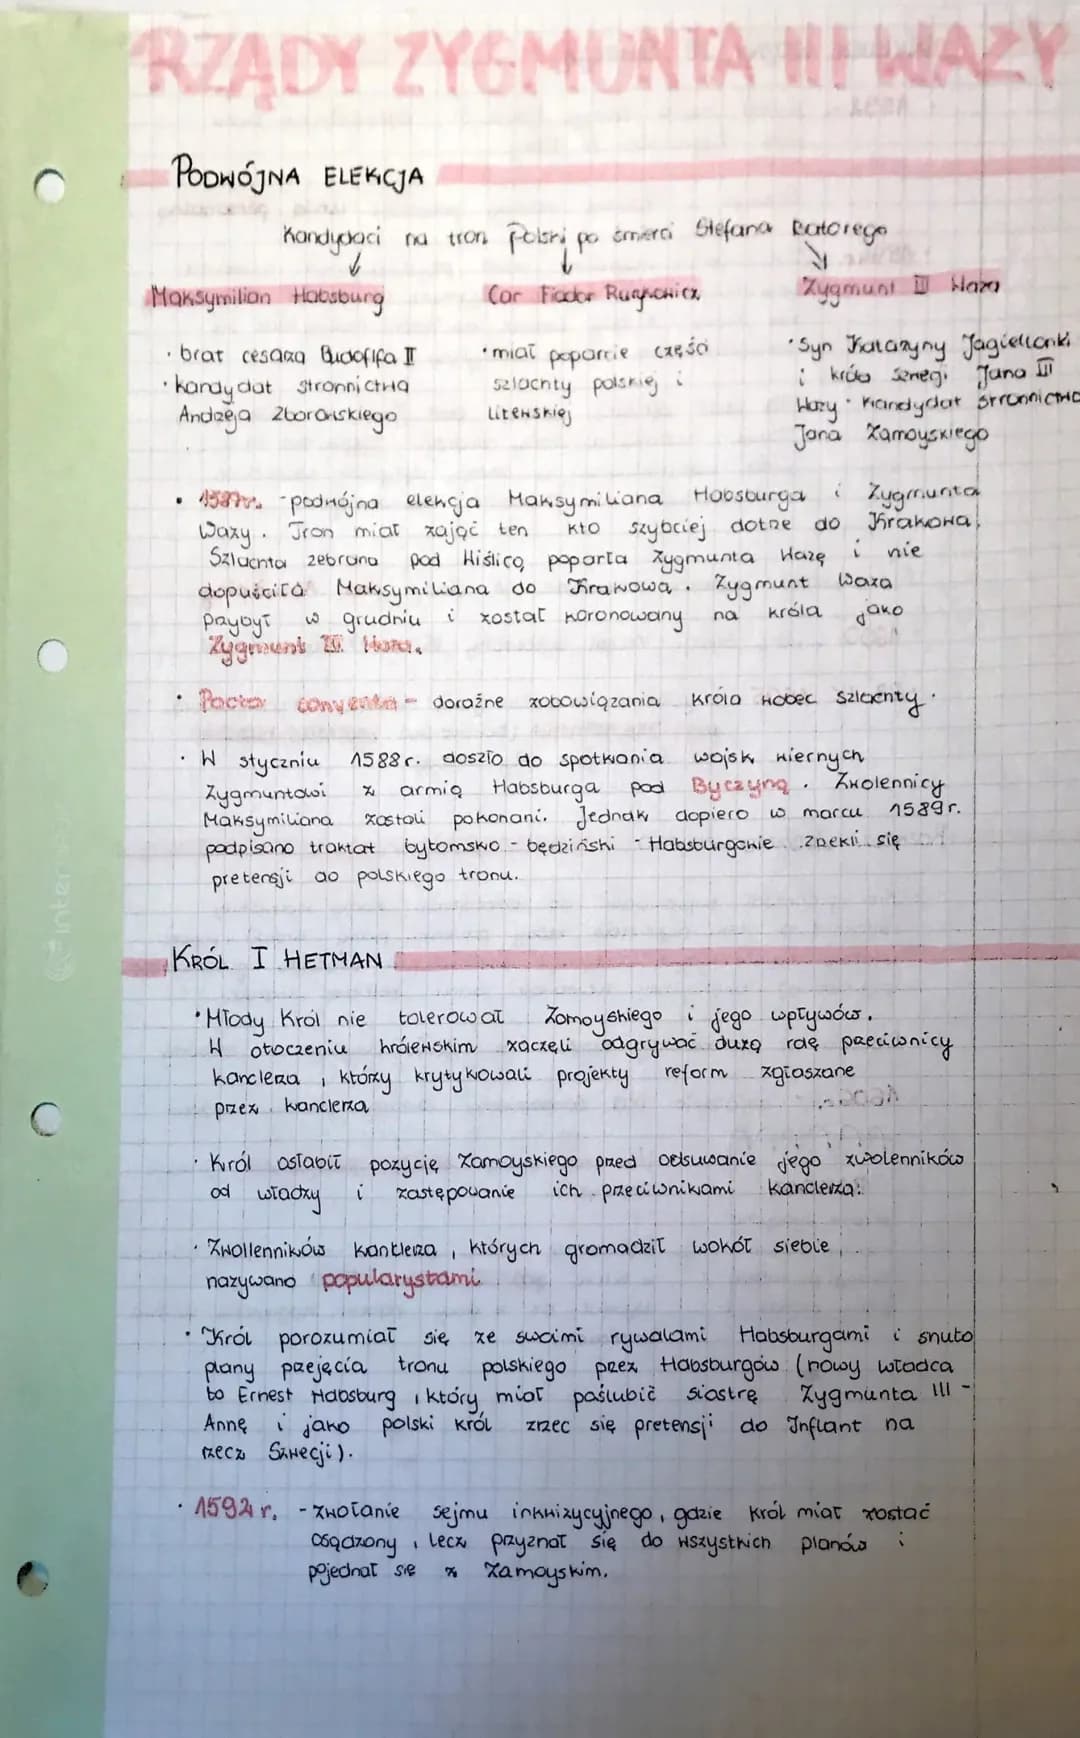 RZĄDY ZYGMUNTA III WAZY
PODWÓJNA ELEKCJA
Kandydaci na tron Polski po śmierci Stefana Batorego
Maksymilian Habsburg
• brat cesarza Rudolfa II
• kandydat stronnictwa
Andrzeja Zborowskiego
Car Fiodor Rurykowicz
• miał poparcie części
szlachty polskiej i
litewskiej
Zygmunt III Waza
• Syn Katarzyny Jagiellonki
i króla Szwecji Jana III
Wazy • Kandydat stronnictwa
Jana Zamoyskiego
• 1587r. - podwójna elekcja Maksymiliana Habsburga i Zygmunta
Wazy. Tron miał zająć ten kto szybciej dotrze do Krakowa.
Szlachta zebrana pod Wiślicą poparła Zygmunta Wazę i nie
dopuściła Maksymiliana do Krakowa. Zygmunt Waza
przybył w grudniu i został koronowany na króla jako
Zygmunt III Waza.
• Pacta conventa - doraźne zobowiązania króla wobec szlachty.
• W styczniu 1588r. doszło do spotkania wojsk wiernych
Zygmuntowi z armią Habsburga pod Byczyną. Zwolennicy
Maksymiliana zostali pokonani. Jednak dopiero w marcu 1589r.
podpisano traktat bytomsko - będziński - Habsburgowie zrzekli się
pretensji do polskiego tronu.
KRÓL I HETMAN
• Młody Król nie tolerował Zamoyskiego i jego wpływów.
W otoczeniu królewskim zaczęli odgrywać dużą rolę przeciwnicy
kanclerza, którzy krytykowali projekty reform zgłaszane
przez kanclerza
• Król osłabił pozycję Zamoyskiego przed odsuwanie jego zwolenników
od władzy i zastępowanie ich przeciwnikami kanclerza.
• Zwollenników kanclerza, których gromadził wokół siebie,
nazywano popularystami
• Król porozumiał się ze swoimi rywalami Habsburgami i snuto
plany przejęcia tronu polskiego przez Habsburgów (nowy władca
to Ernest Habsburg, który miał poślubić siostrę Zygmunta III -
Annę i jako polski król zrzec się pretensji do Inflant na
rzecz Szwecji).
• 1592 r. - zwołanie sejmu inkwizycyjnego, gdzie król miał zostać
osądzony, lecz przyznał się do wszystkich planów i
pojednał się z Zamoyskim.